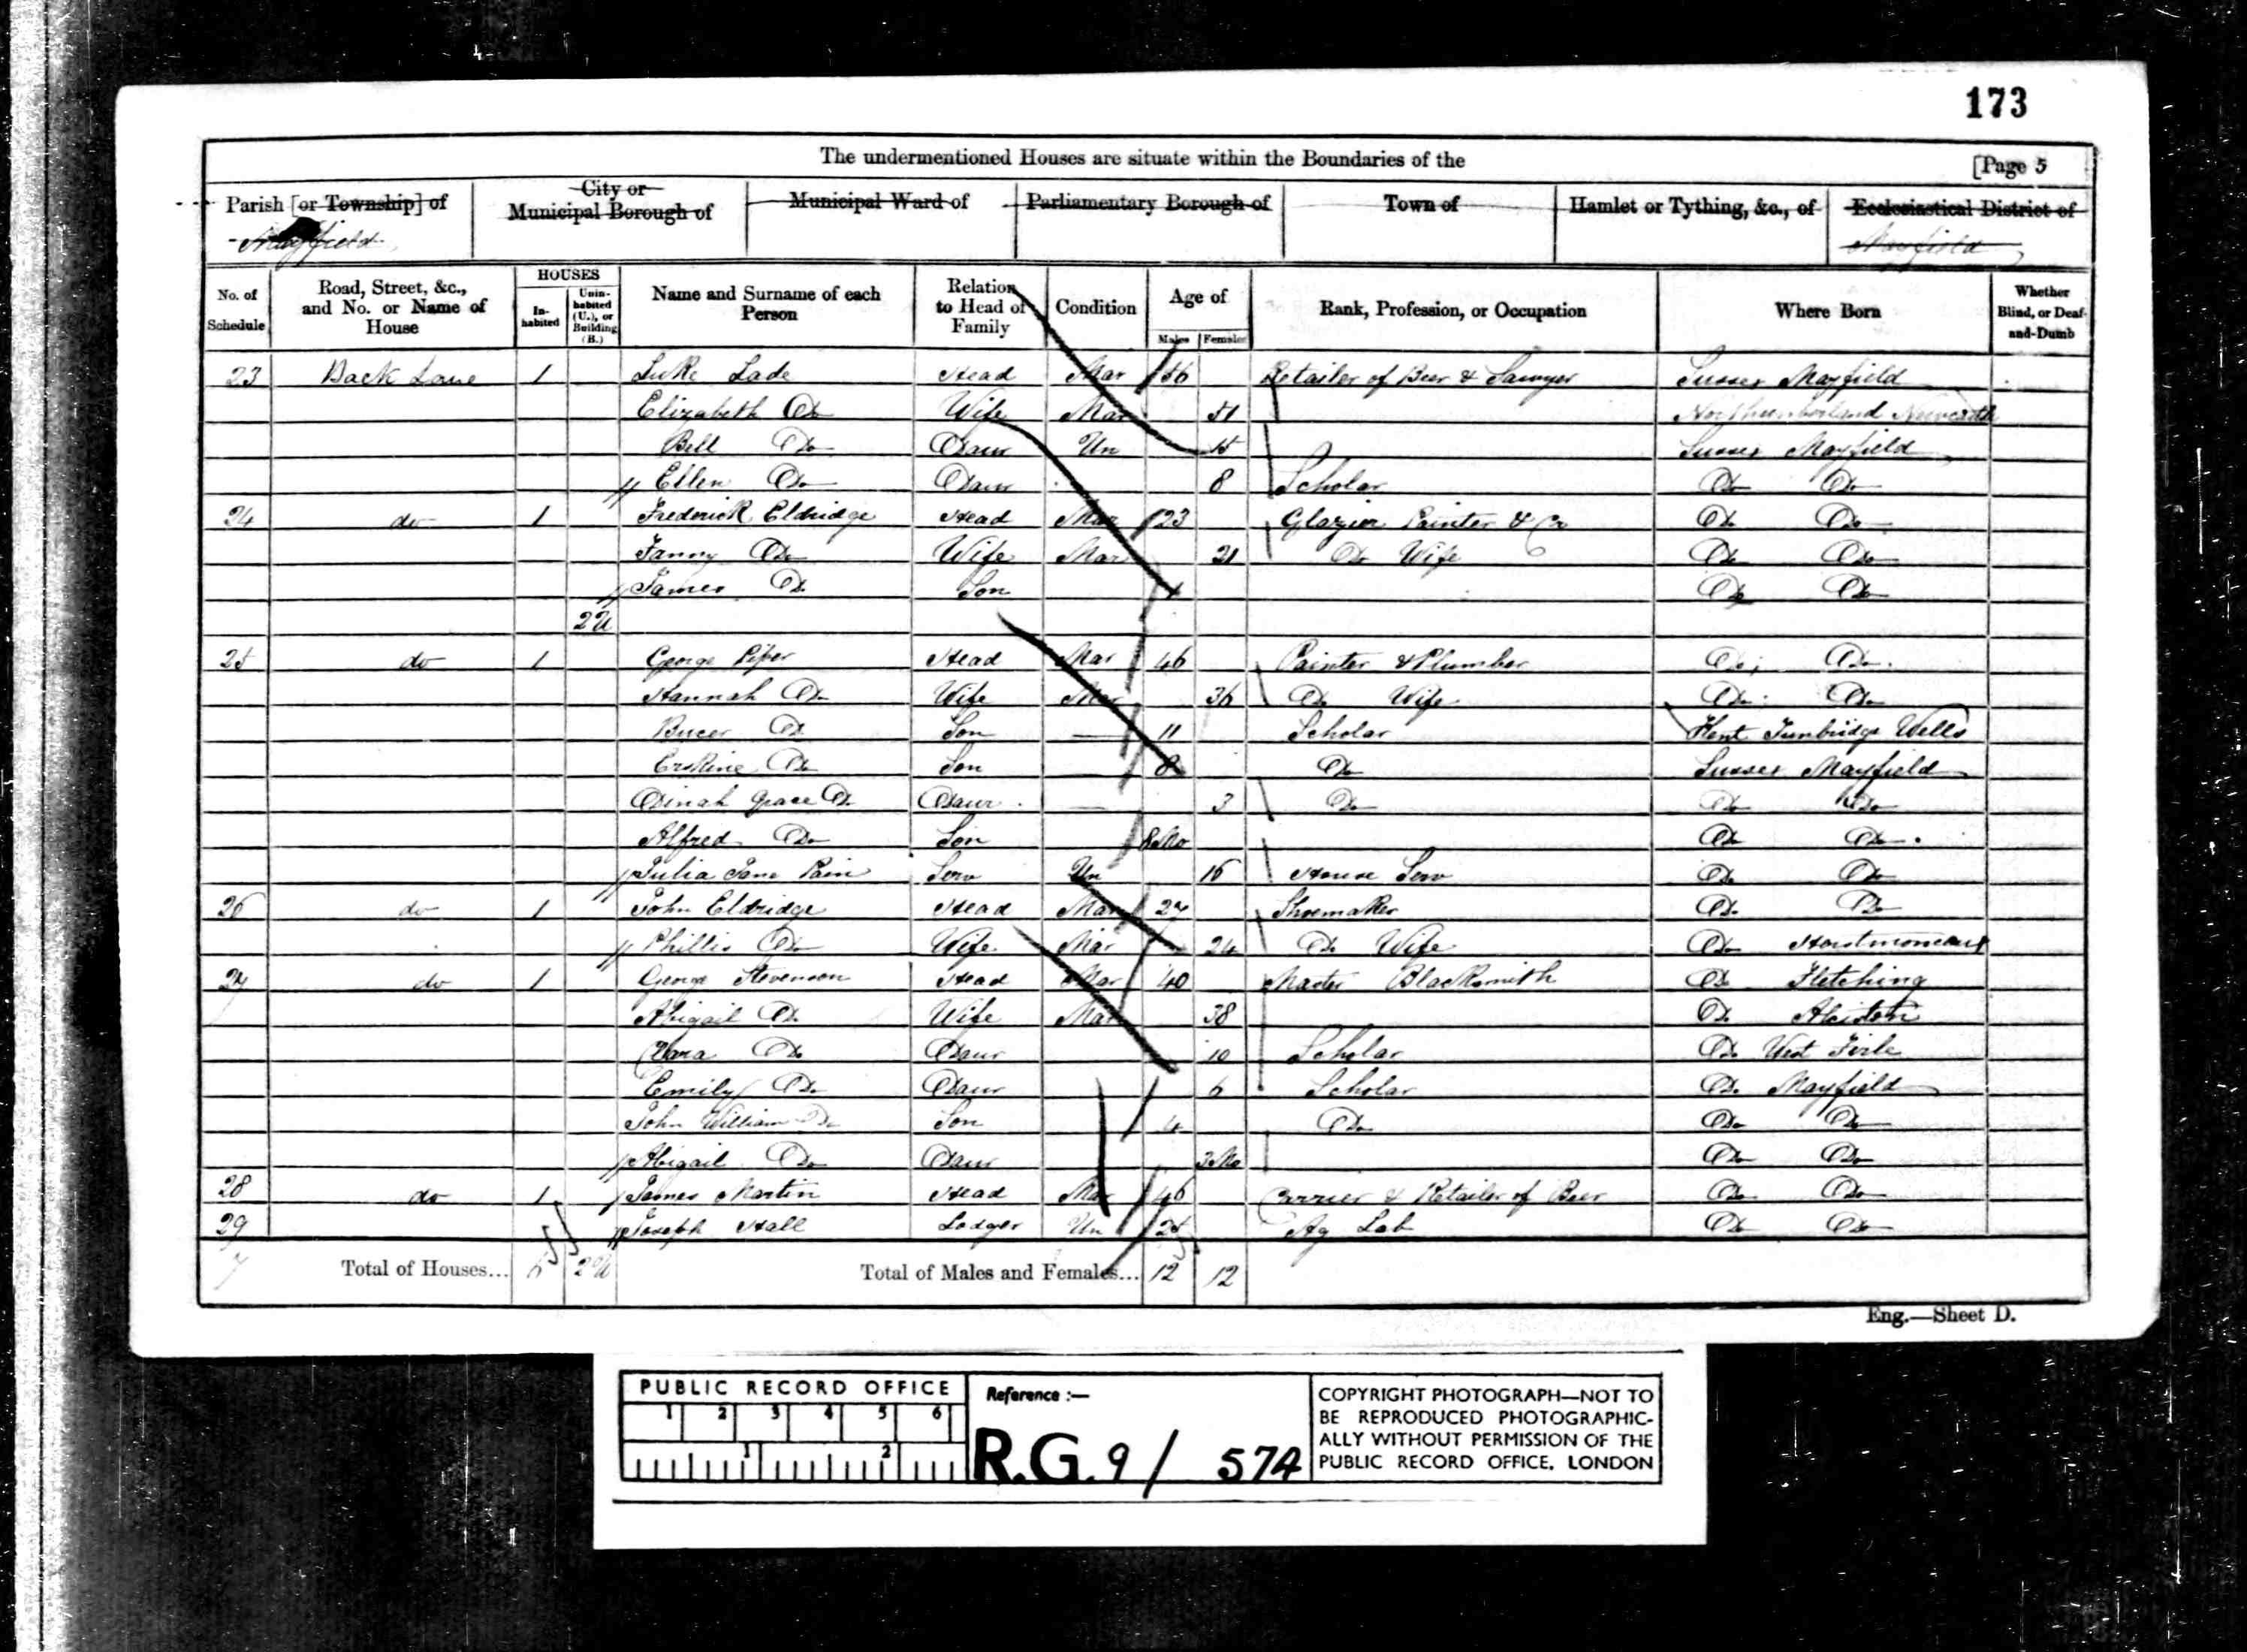 173
The undermentioned Houses are situate within the Boundaries of the
[Page 5
Parish [or Township] of
City or
Municipal Borough of
Municipal Ward of
Parliamentary Borough of
Town of
Hamlet or Tything, &c., of
Ecclesiastical District of
Mayfield
Mayfield
No. of Schedule
Road, Street, &c., and No. or Name of House
HOUSES
In-habited
Unin-habited (U.), or Building (B.)
Name and Surname of each Person
Relation to Head of Family
Condition
Age of
Males Females
Rank, Profession, or Occupation
Where Born
Whether Blind, or Deaf-and-Dumb
23 Back Lane 1 Luke Lade Head Mar 56 Retailer of Beer & Sawyer Sussex Mayfield
Elizabeth Do Wife Mar 51 Northumberland Newcastle
Bell Do Daur Un 15 Sussex Mayfield
Ellen Do Daur 8 Scholar Do Do
24 do 1 Frederick Eldridge Head Mar 23 Glazier Painter & Do Do
Fanny Do Wife Mar 21 Do Wife Do Do
James Do Son Do Do
2 U
25 do 1 George Piper Head Mar 46 Painter & Plumber Do Do
Hannah Do Wife Mar 36 Do Wife Do Do
Bucer Do Son 11 Scholar Kent Tunbridge Wells
Erskine Do Son 8 Do Sussex Mayfield
Dinah Grace Do Daur 3 Do Do Do
Alfred Do Son 8 Mo Do Do
Julia Jane Pain Serv Un 16 House Serv Do Do
26 do 1 John Eldridge Head Mar 27 Shoemaker Do Do
Phillis Do Wife Mar 24 Do Wife Do Hurstmonceaux
27 do 1 George Stevenson Head Mar 40 Master Blacksmith Do Fletching
Abigail Do Wife Mar 38 Do
Clara Do Daur 10 Scholar Do West Firle
Emily Do Daur 6 Scholar Do Mayfield
John William Do Son 4 Do Do Do
Abigail Do Daur 3 Mo Do Do
28 do 1 James Martin Head Mar 46 Carrier & Retailer of Beer Do Do
29 Joseph Hall Lodger Un 25 Ag Lab Do Do
Total of Houses... 6 2 U Total of Males and Females... 12 12
Eng.—Sheet D.
PUBLIC RECORD OFFICE
1 2 3 4 5 6
1 2
Reference :—
R.G. 9 / 574
COPYRIGHT PHOTOGRAPH—NOT TO
BE REPRODUCED PHOTOGRAPHIC-
ALLY WITHOUT PERMISSION OF THE
PUBLIC RECORD OFFICE, LONDON